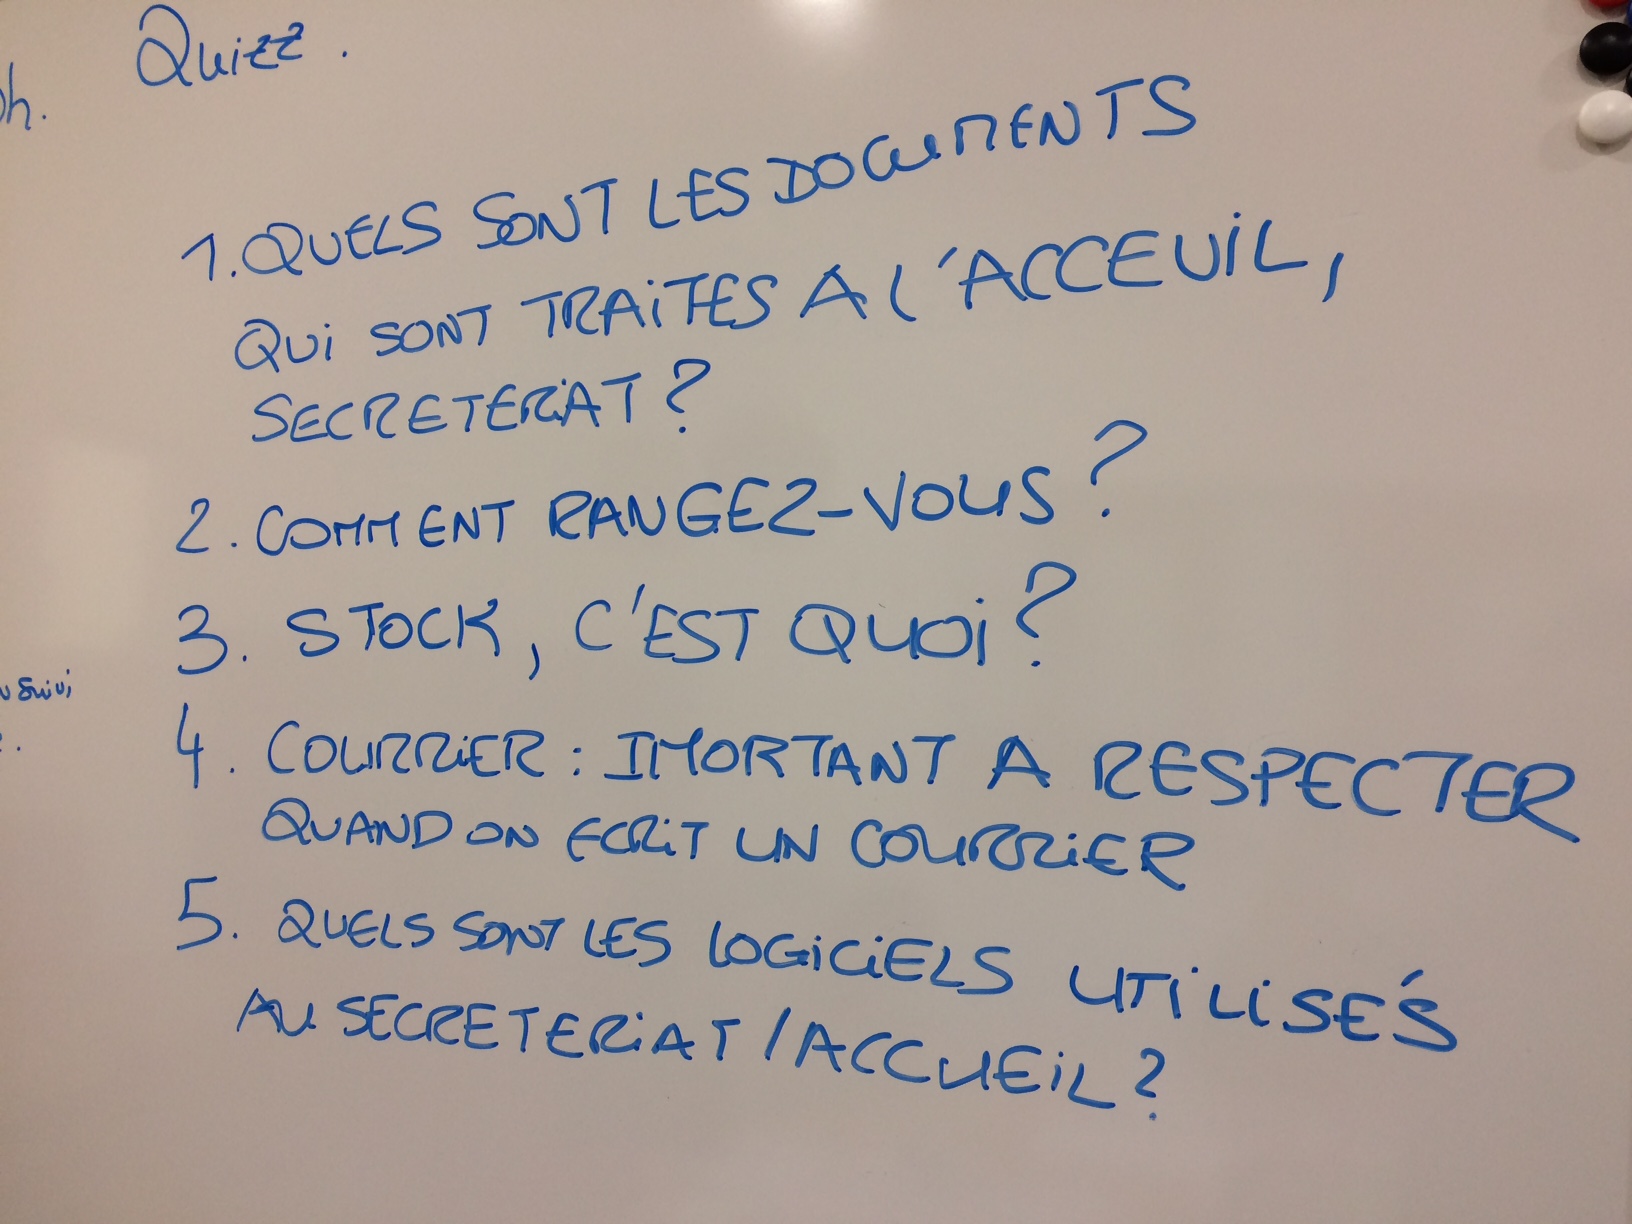 Quizz.
h.
1. QUELS SONT LES DOCUMENTS
QUi SONT TRAiTES A l'ACCEUiL,
SECRETERiAT?
2. COMMENT RANGEZ-VOUS?
3. STOCK, C'EST QUOi?
4. COURRiER: IMORTANT A RESPECTER
QUAND ON ECRiT UN COURRiER
5. QUELS SONT LES LOGiCiELS UTiLiSÉS
AU SECRETERiAT/ACCUEiL?
suivi